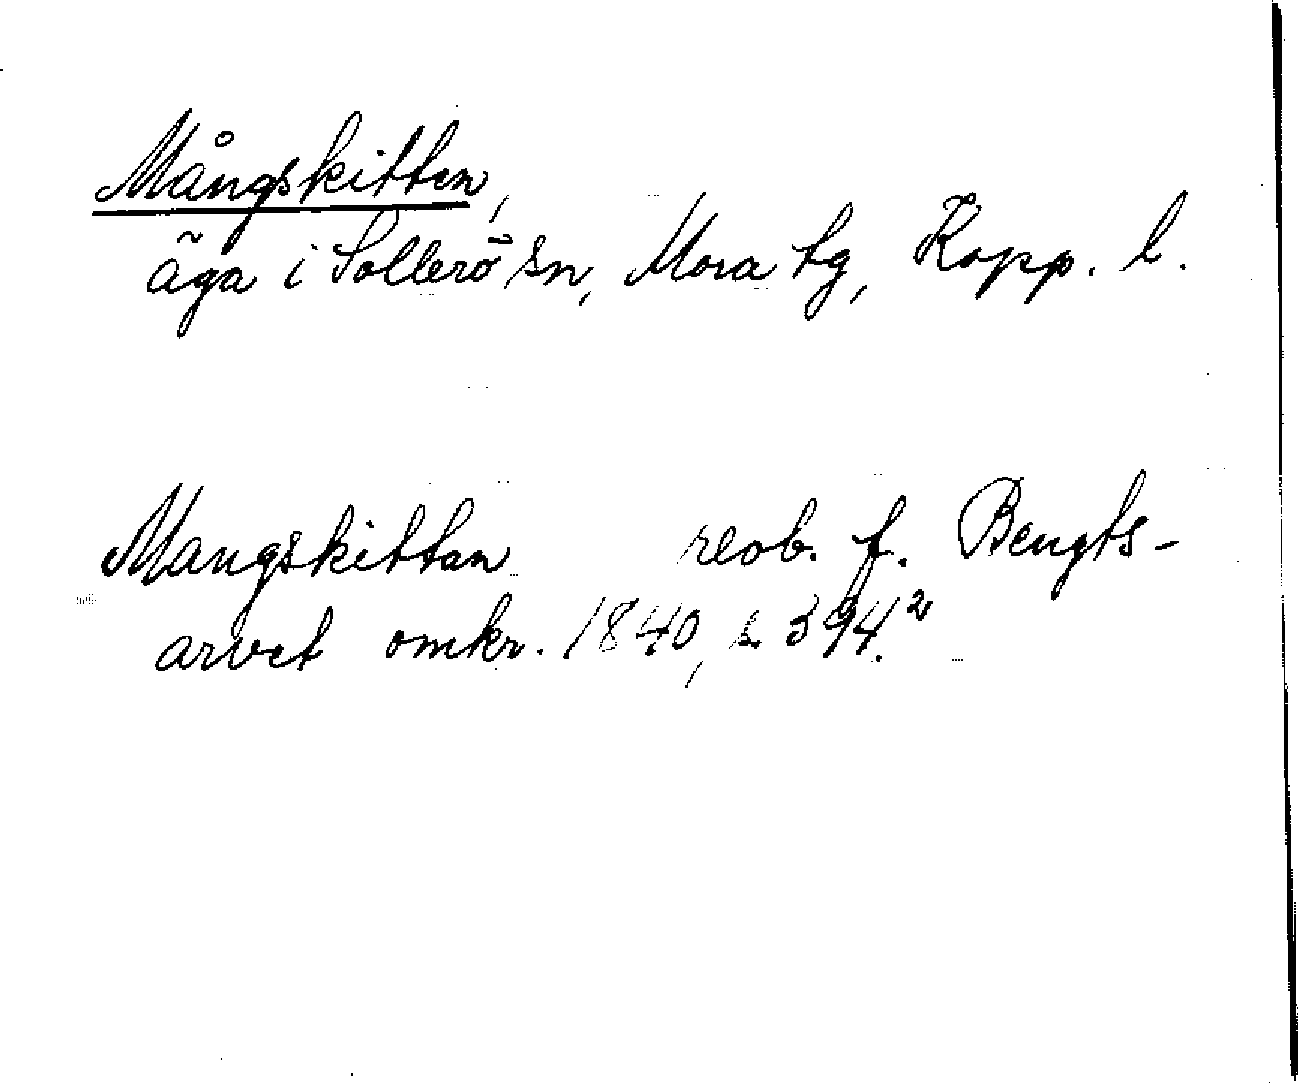 Mångskitten,
äga i Sollerö sn, Mora tg, Kopp. l.
Mangskittan reob. f. Bengts-
arvet omkr. 1840, s 394.²